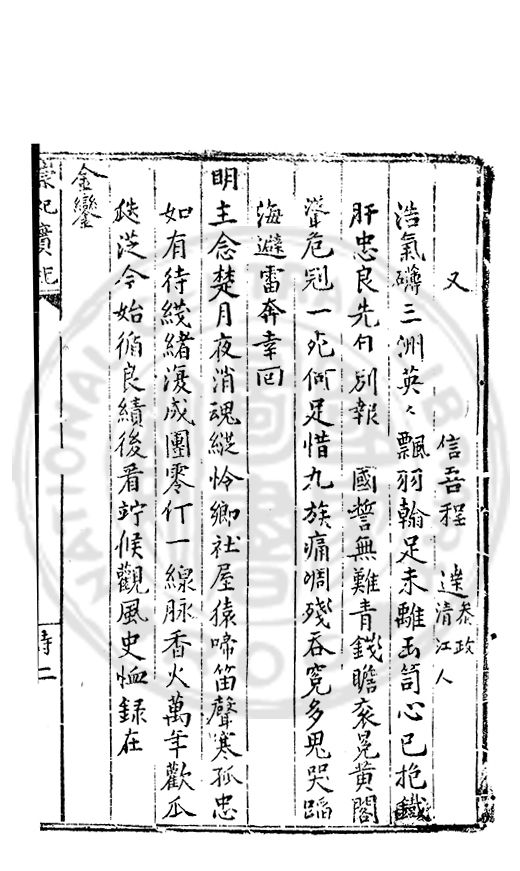 又
信吾程　達　參政清江人
浩氣礴三洲英々飄羽翰足未離玉笥心已抱鐵
肝忠良先自別報　國誓無難青錢瞻袞冕黃閣
聳危冠一死何足惜九族痛凋殘吞冤多鬼哭蹈
海避雷奔幸回
明主念楚月夜消魂縱怜鄉社屋猿啼笛聲寒孤忠
如有待綫緒復成團零仃一線脉香火萬年歡瓜
瓞从今始循良績後看竚候觀風史恤録在
金鑾
崇祀實紀
詩二
NATIONAL LIBRARY